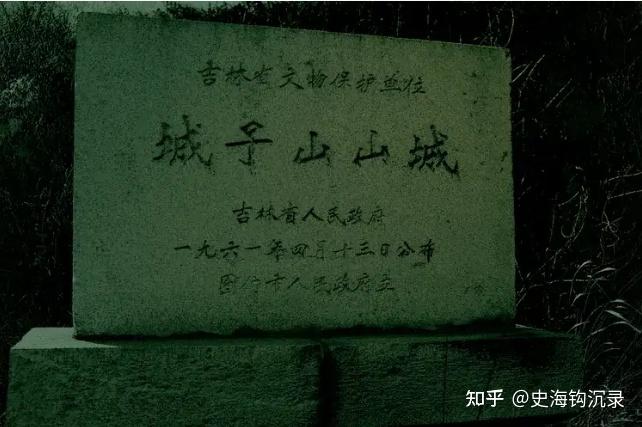 吉林省文物保护单位
城子山山城
吉林省人民政府
一九六一年四月十三日公布
图们市人民政府立
知乎 @史海钩沉录